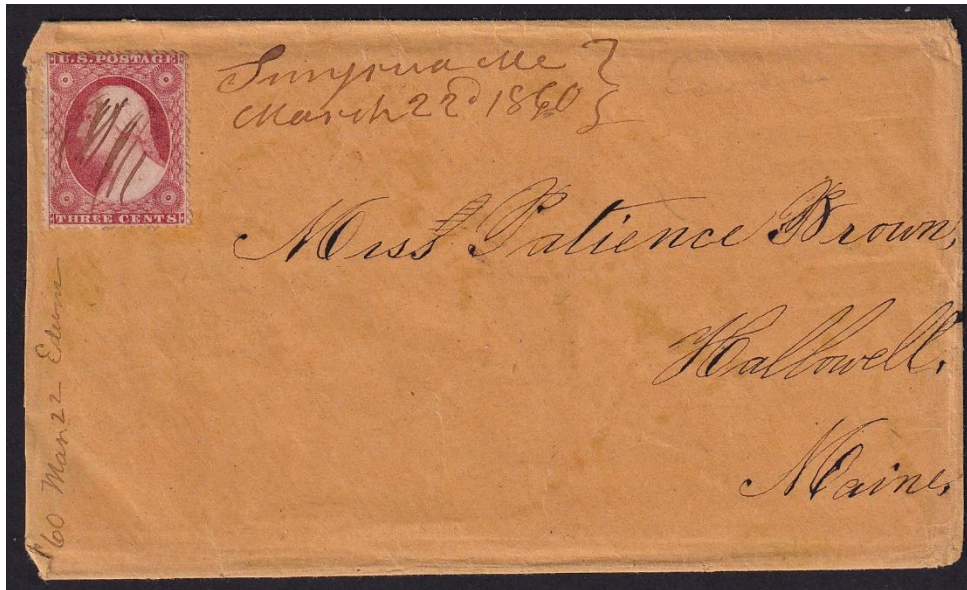 U.S. POSTAGE
THREE CENTS
Smyrna Me
March 22d 1860
Miss Patience Brown,
Hallowell.
Maine.
'60 Mar 22 Edwin